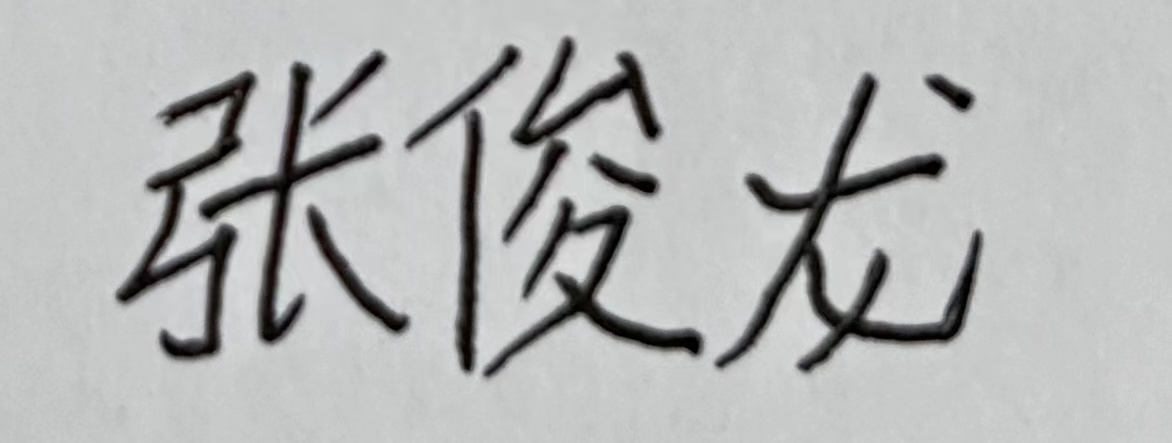 张俊龙